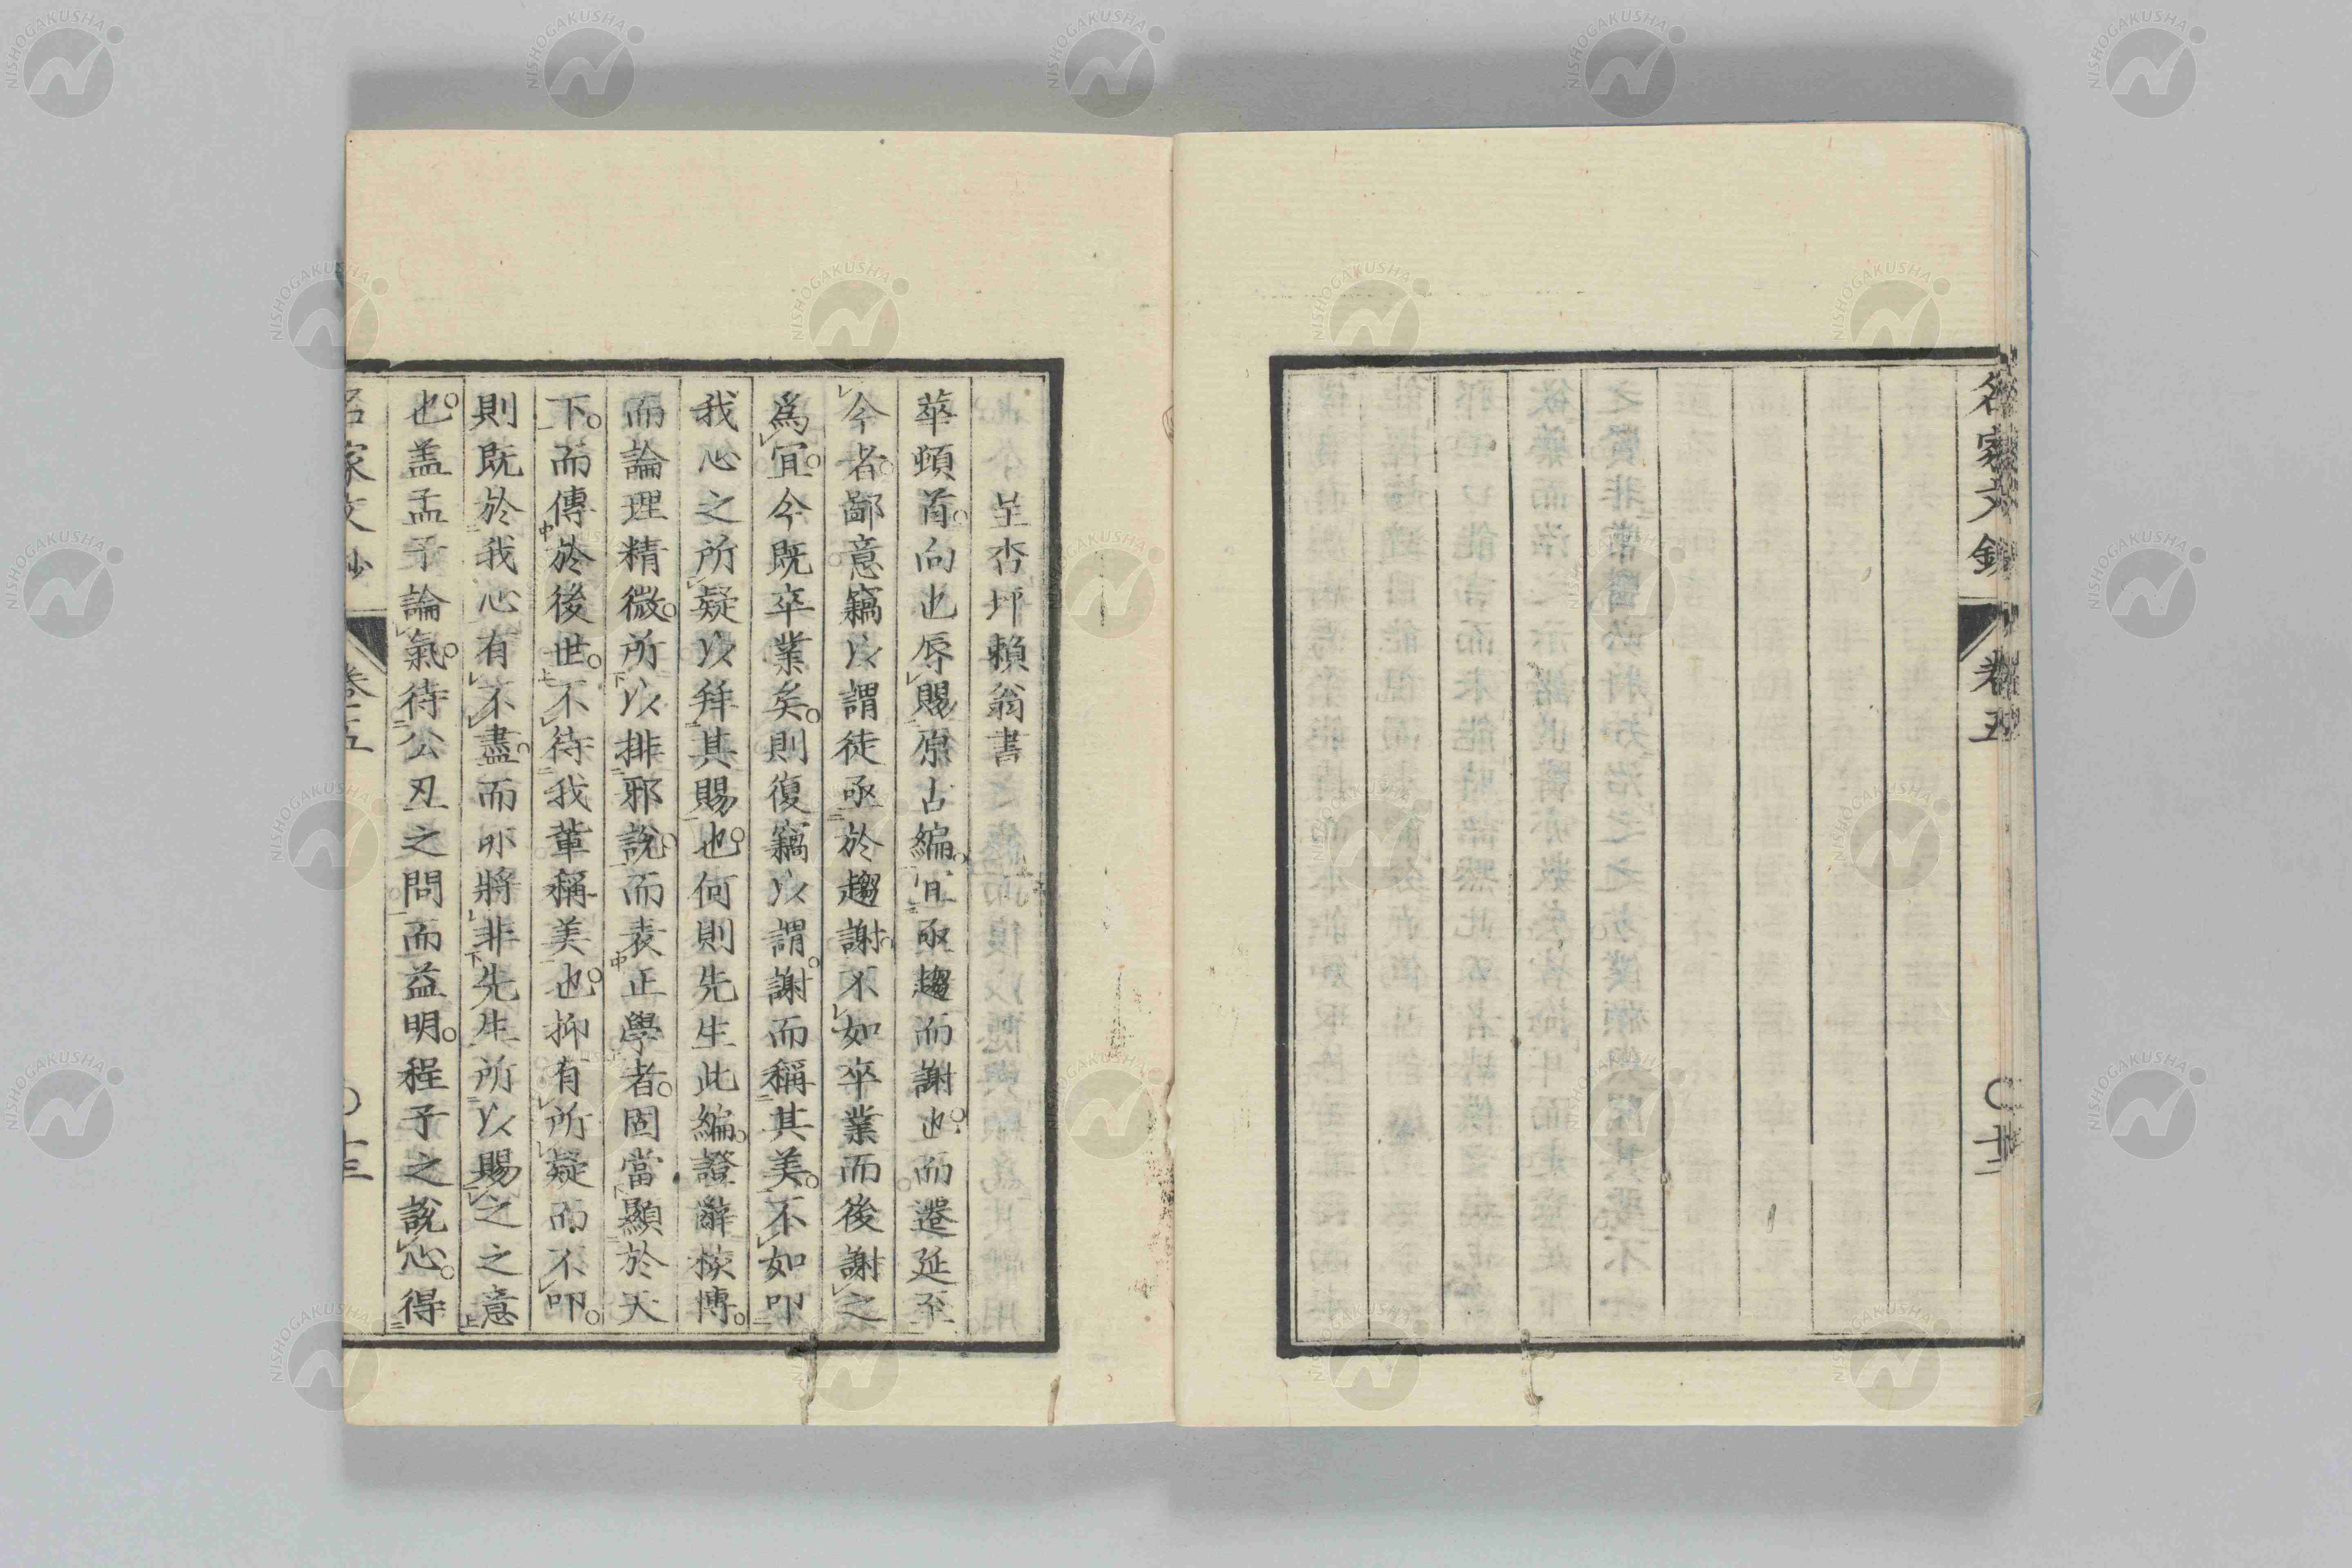 名家文鈔
卷五
呈杏坪賴翁書
華頓首向也辱賜原古編宜亟趨而謝也而遷延至
今者鄙意竊以謂徒亟於趨謝不如卒業而後謝之
爲宜今既卒業矣則復竊以謂謝而稱其美不如叩
我心之所疑以拜其賜也何則先生此編證辭核博
而論理精微所以排邪說而表正學者固當顯於天
下而傳於後世不待我輩稱美也抑有所疑而不叩
則既於我心有不盡而亦將非先生所以賜之之意
也盖孟子論氣待公丑之問而益明程子之說心得
名家文鈔
卷五
NISHOGAKUSHA